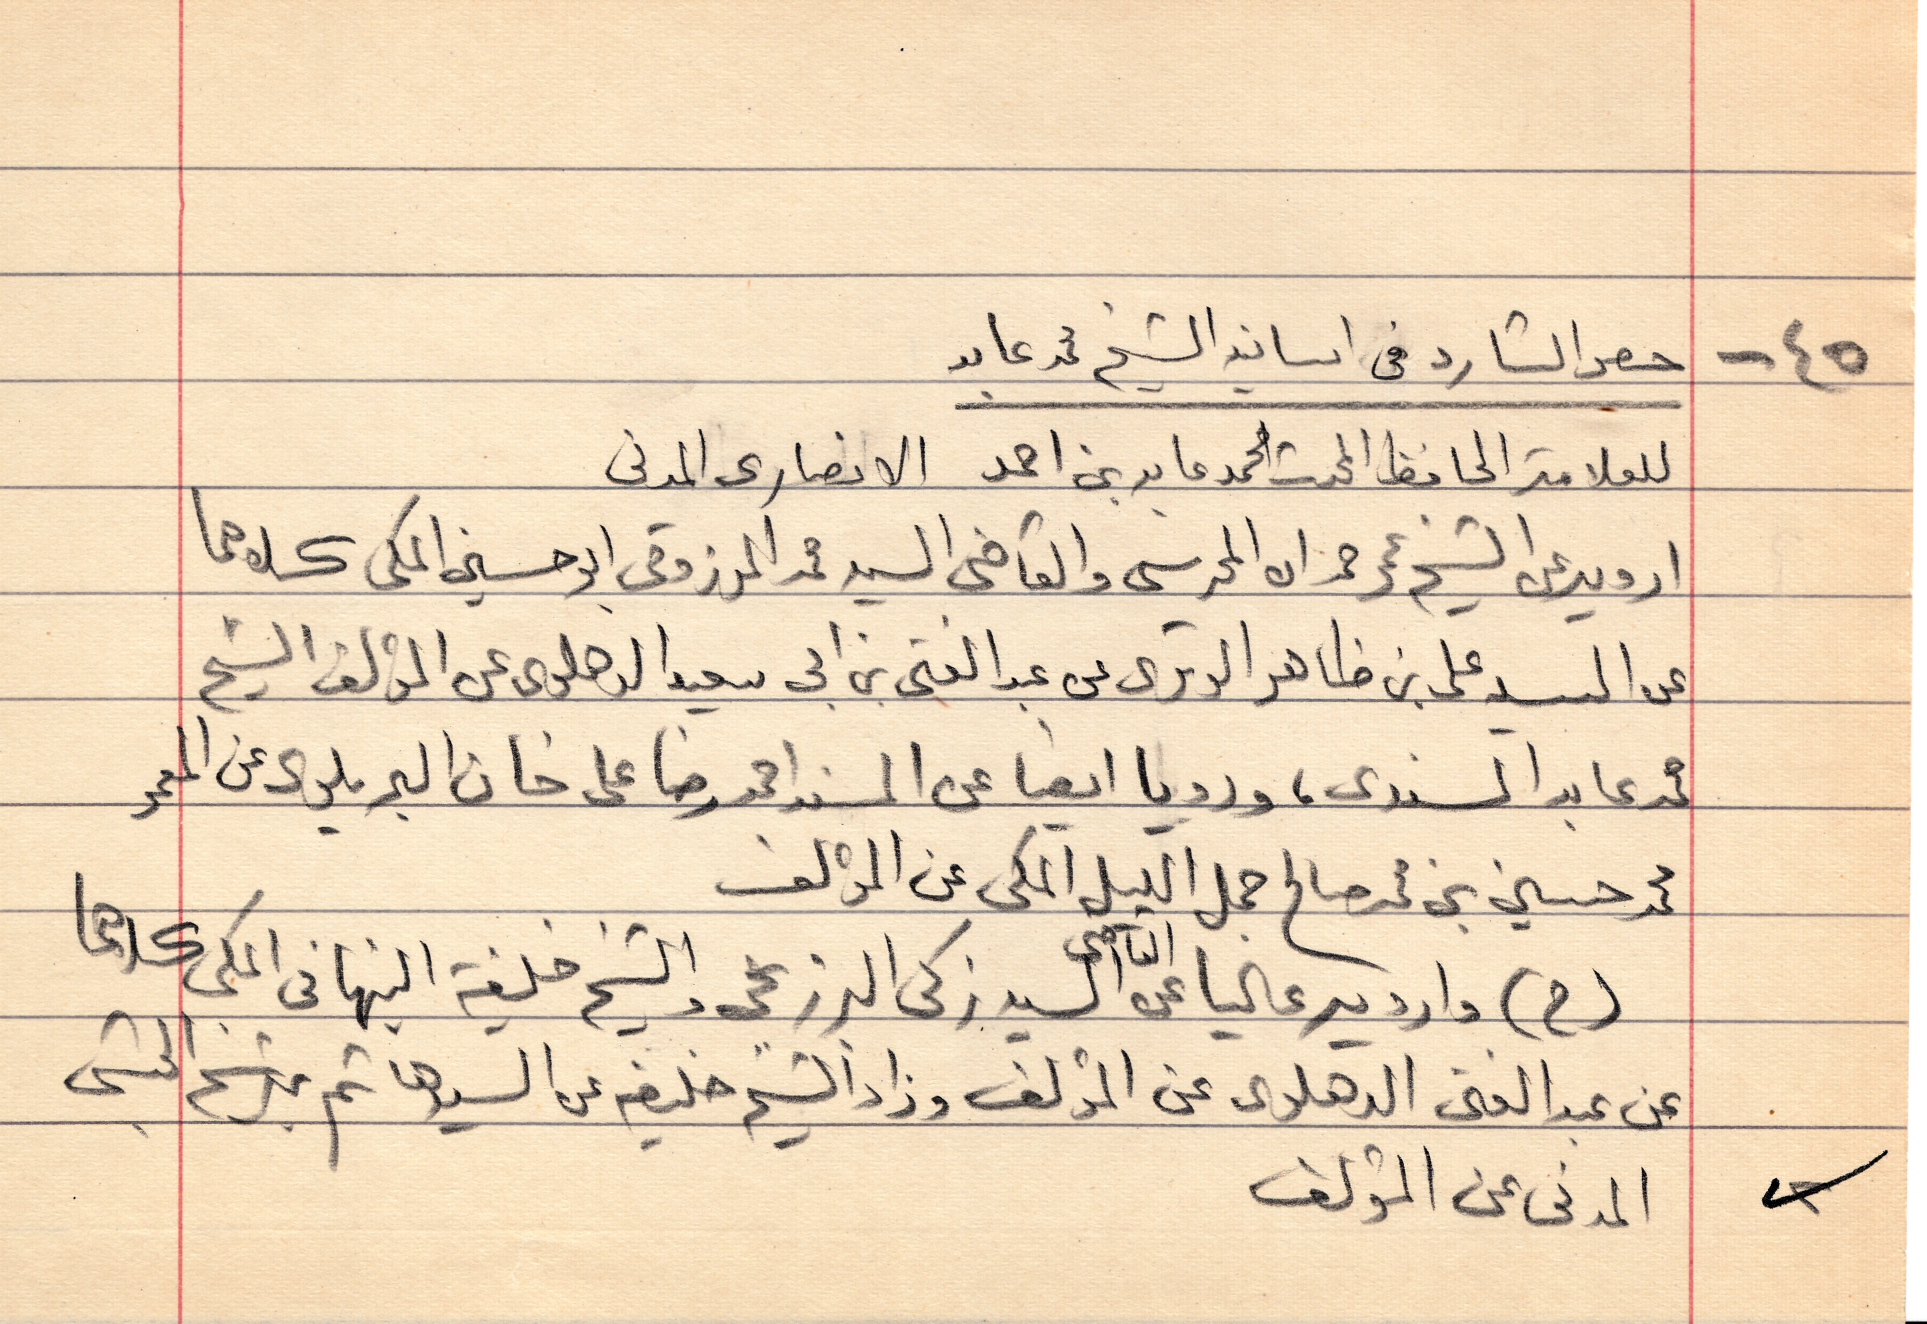 ٤٥ - حصر الشارد فى اسانيد الشيخ محمد عابد
للعلامة الحافظ المحدث محمد عابد بن احمد الانصارى المدنى
ارويه عن الشيخ عمر حمدان المحرسى والقاضى السيد محمد المرزوقى ابو حسين المكى كلاهما
عن السيد على بن ظاهر الوترى عن عبد الغنى بن ابى سعيد الدهلوى عن المؤلف الشيخ
محمد عابد السندى ، ورويا ايضا عن المسند احمد رضا على خان البريلوى عن المعمر
محمد حسين بن محمد صالح جمل الليل المكى عن المؤلف
(ح) وارويه عاليا عن القاضى السيد زكى البرزنجى والشيخ خليفة النبهانى المكى كلاهما
عن عبد الغنى الدهلوى عن المؤلف وزاد الشيخ خليفه عن السيد هاشم بن شيخ الحبشى
المدنى عن المؤلف